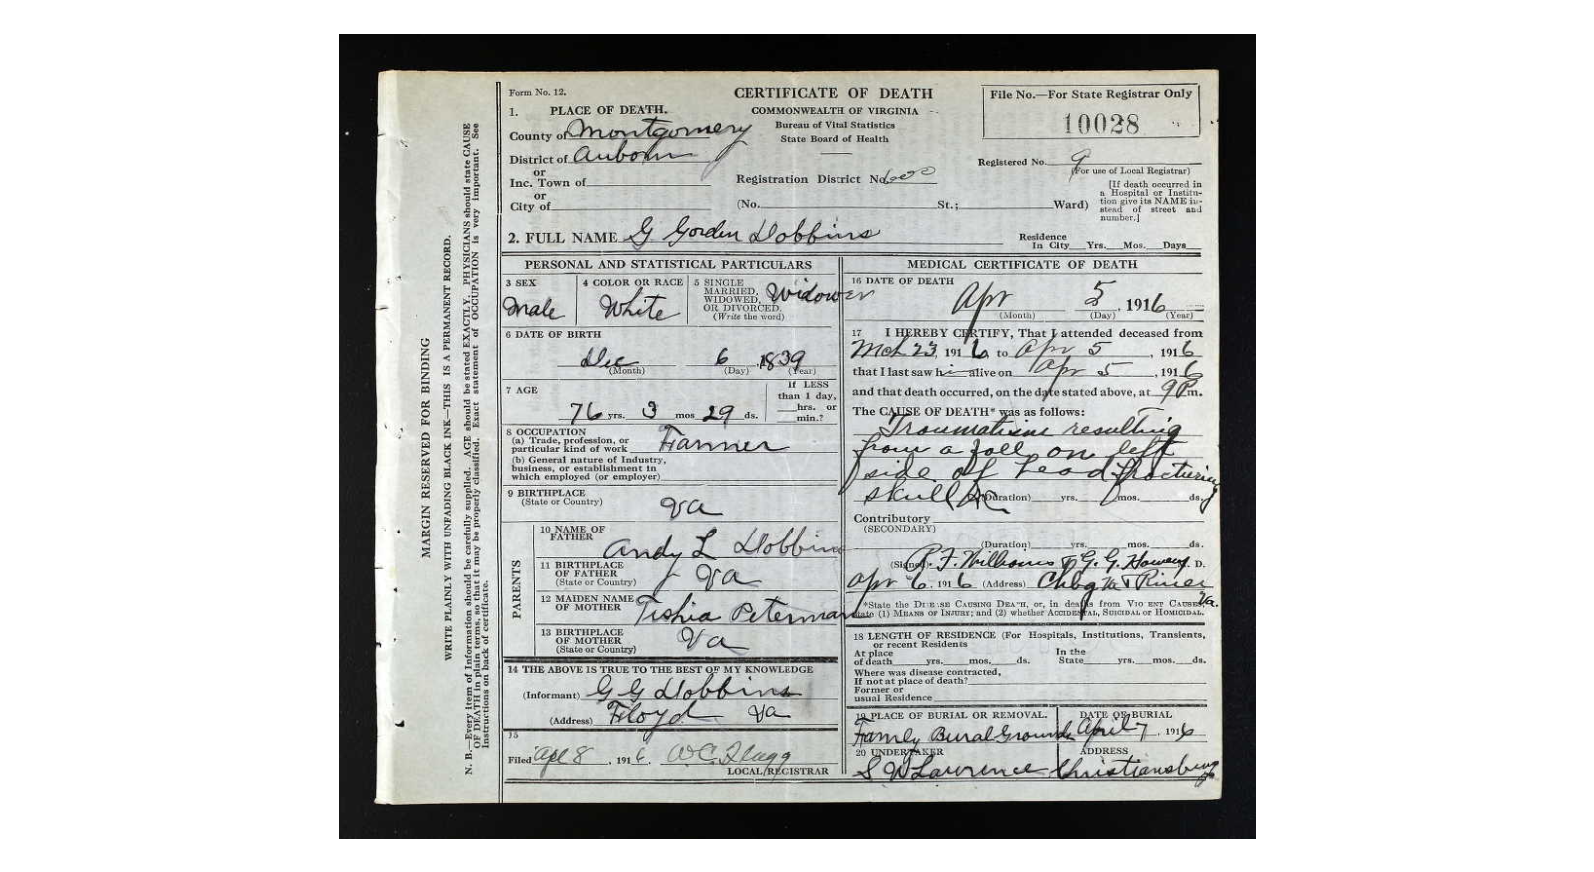 Form No. 12.
CERTIFICATE OF DEATH
COMMONWEALTH OF VIRGINIA
Bureau of Vital Statistics
State Board of Health
File No.—For State Registrar Only
10028
1. PLACE OF DEATH.
County of Montgomery
District of Auborn
or
Inc. Town of
or
City of
Registration District No. 600
Registered No. 9
(For use of Local Registrar)
(No. St.; Ward)
[If death occurred in
a Hospital or Institu-
tion give its NAME in-
stead of street and
number.]
2. FULL NAME G Gorden Dobbins
Residence
In City Yrs. Mos. Days
PERSONAL AND STATISTICAL PARTICULARS
3 SEX
Male
4 COLOR OR RACE
White
5 SINGLE
MARRIED,
WIDOWED,
OR DIVORCED.
(Write the word)
Widower
6 DATE OF BIRTH
Dec 6, 1839
(Month) (Day) (Year)
7 AGE
76 yrs. 3 mos 29 ds.
If LESS
than 1 day,
hrs. or
min.?
8 OCCUPATION
(a) Trade, profession, or
particular kind of work Farmer
(b) General nature of Industry,
business, or establishment in
which employed (or employer)
9 BIRTHPLACE
(State or Country)
Va
PARENTS
10 NAME OF
FATHER
Andy L Dobbins
11 BIRTHPLACE
OF FATHER
(State or Country)
Va
12 MAIDEN NAME
OF MOTHER
Tishia Peterman
13 BIRTHPLACE
OF MOTHER
(State or Country)
Va
14 THE ABOVE IS TRUE TO THE BEST OF MY KNOWLEDGE
(Informant) G G Dobbins
(Address) Floyd Va
15
Filed Apl 8, 1916 W.C. Flagg
LOCAL REGISTRAR
MEDICAL CERTIFICATE OF DEATH
16 DATE OF DEATH
Apr 5, 1916
(Month) (Day) (Year)
17 I HEREBY CERTIFY, That I attended deceased from
Mch 23, 1916 to Apr 5, 1916
that I last saw hi alive on Apr 5, 1916
and that death occurred, on the date stated above, at 9P m.
The CAUSE OF DEATH* was as follows:
Traumatism resulting
from a fall on left
side of head fracturing
skull &c
(Duration) yrs. mos. ds.
Contributory
(SECONDARY)
(Duration) yrs. mos. ds.
(Signed) F. Williams & G. G. M. D.
Apr 6, 1916 (Address) Chbg Va & Riner Va.
*State the DISEASE CAUSING DEATH, or, in deaths from VIOLENT CAUSES,
state (1) MEANS OF INJURY; and (2) whether ACCIDENTAL, SUICIDAL OR HOMICIDAL.
18 LENGTH OF RESIDENCE (For Hospitals, Institutions, Transients,
or recent Residents
At place
of death yrs. mos. ds.
In the
State yrs. mos. ds.
Where was disease contracted,
If not at place of death?
Former or
usual Residence
19 PLACE OF BURIAL OR REMOVAL.
Family Bural Grounds
DATE OF BURIAL
April 7, 1916
20 UNDERTAKER
S W Lawrence
ADDRESS
Christiansburg
MARGIN RESERVED FOR BINDING
WRITE PLAINLY WITH UNFADING BLACK INK—THIS IS A PERMANENT RECORD.
N. B.—Every item of Information should be carefully supplied. AGE should be stated EXACTLY. PHYSICIANS should state CAUSE
OF DEATH in plain terms, so that it may be properly classified. Exact statement of OCCUPATION is very important. See
Instructions on back of certificate.